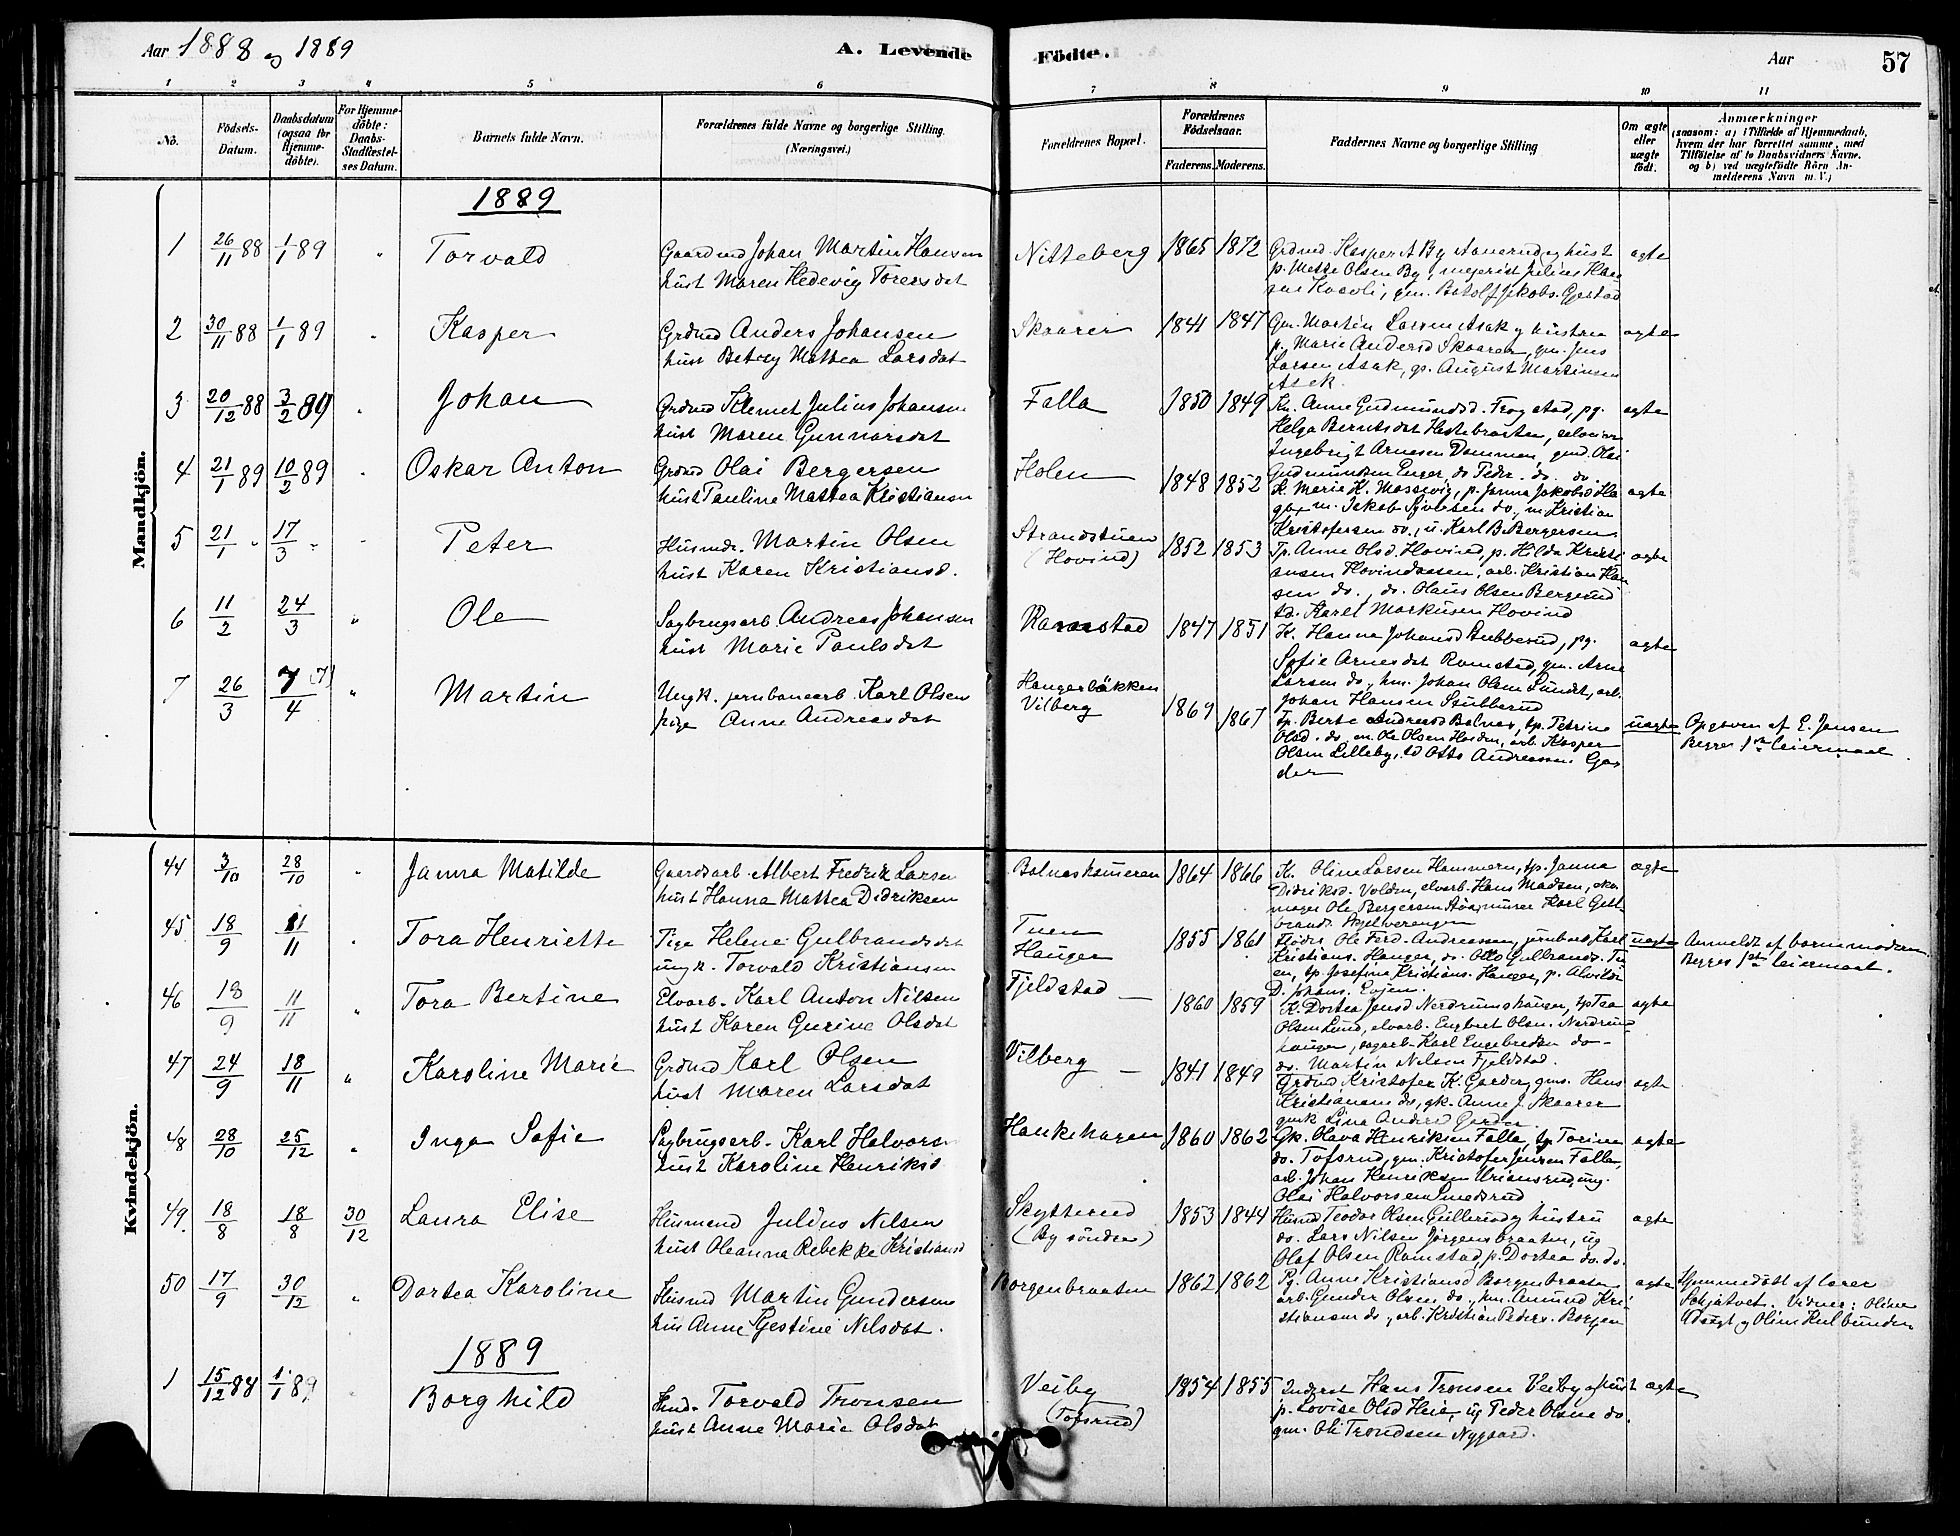 Aar 1888 og 1889
A. Levende Födte.
Aar
57
1 2 3 4 5 6 7 8 9 10 11
No.
Födsels-Datum.
Daabsdatum (ogsaa for Hjemmedöbte).
For Hjemmedöbte: Daabs-Stadfæstelses Datum.
Barnets fulde Navn.
Forældrenes fulde Navne og borgerlige Stilling. (Næringsvei.)
Forældrenes Bopæl.
Forældrenes Födselsaar.
Faderens. Moderens.
Faddernes Navne og borgerlige Stilling
Om ægte eller uægte födt.
Anmærkninger
(saasom: a) i Tilfælde af Hjemmedaab, hvem der har forrettet samme, med Tilföielse af to Daabsvidners Navne, og b) ved uægtefödte Börn Anmelderens Navn m. V.)
Mandkjön.
1889
1 26/11 88 1/1 89 " Torvald
Gaardmd Johan Martin Hansen
hust Maren Hedevig Toresdat
Nitteberg 1865 1872
Grdmd Kasper A By
p. Mette Olsen By, meierist Julius Han
sen
ægte
2 30/11 88 1/1 89 " Kasper
Grdmd Anders Johansen
hust Betsey Mattea Larsdat
Skaarer 1841 1847
Gm. Martin Larsen Asak og hustru
p. Marie Andersd Skaarer, gm. Jens
Larsen Asak, gs. August Martinsen
Asak.
ægte
3 20/12 88 3/2 89 " Johan
Grdmd Klemet Julius Johansen
hust Maren Gunnarsdat
Falla 1850 1849
Kn. Anne Gudmundsd. Trogstad, pg.
Helga Berntsdat Hestebraaten, selveier
Ingebrigt Arnesen Dammen, gmd. Olai
Gudmundsen Enger, do Peder do. do.
ægte
4 21/1 89 10/2 89 " Oskar Anton
Grdmd Olai Bergersen
hust Pauline Mattea Kristiansen
Holen 1848 1852
K. Marie K. Massevig, p. Janna Jakobsd Ha
ga, m. Jakob Syvertsen do, m Kristian
Kristofersen do., u. Karl B. Bergersen
ægte
5 21/1 " 17/3 " " Peter
Husmdr. Martin Olsen
hust Karen Kristiansd.
Strandstuen
(Hovind) 1852 1853
Tp. Anne Olsd. Hovind, p. Hilda Kristi
ansen Hovindaasen, arb. Kristian Han
sen do., do. Olaus Olsen Bergerud
td. Karel Markusen Hovind
ægte
6 11/2 24/3 " Ole
Sagbrugsarb. Andreas Johansen
hust Marie Paulsdat
Ramstad 1847 1851
K. Hanna Johansd Stubberud, pg.
Sofie Arnesdat Ramstad, gm. Arne
Larsen do., hm. Johan Olsen Sundt, arb.
Johan Hansen Stubberud
ægte
7 26/3 7/4 " Martin
Ungk. jernbanearb. Karl Olsen
pige Anne Andreasdat
Haugerbakken
Vilberg 1869 1867
Tp. Berte Andreasd Balnes, tp. Petrine
Olsd. do, m. Ole Olsen Holden, arb. Kasper
Olsen Lilleby, td Otto Andreassen Gar
der
uægte
Opgiven af E. Jensen
Begges 1ste leiermaal
Kvindekjön.
44 3/10 28/10 " Janna Matilde
Gaardsarb. Albert Fredrik Larsen
hust Hanna Mattea Didriksen
Balneshameren 1864 1866
K. Oline Larsen Hammeren, tp. Janna
Didriksd. Volden, elvarb. Hans Madsen, sko
mager Ole Bergersen Aas, murer Karl Gul
brands. Skjelverengen
ægte
45 18/9 11/11 " Tora Henriette
Pige Helene Gulbrandsdat
ungk. Torvald Kristiansen
Tuen
Hauger 1855 1861
Fløder Ole Ferd. Andreassen, jernbarb Karl
Kristians. Hauger, do. Otto Gulbrands. Tu
en, tp. Josefine Kristians. Hauger, p. Alvilde
D. Johans. Evjen.
uægte
Anmeldt af barnemoderen
Begges 1ste leiermaal.
46 18/9 11/11 " Tora Bertine
Elvarb. Karl Anton Nilsen
hust Karen Gurine Olsdat
Fjeldstad — 1860 1859
K. Dortea Jensd Nordrumshaugen, tp Tea
Olsen Lund, elvarb. Engbert Olsen Nordrum
haugen, sagarb. Karl Engebretsen do-
do. Martin Nilsen Fjeldstad.
ægte
47 24/9 18/11 " Karoline Marie
Grdmd Karl Olsen
hust Maren Larsdat
Vilberg — 1841 1849
Grdmd Kristofer K. Garder, gms. Hans
Kristiansen do, gk. Anne J. Skaarer
gmk Lina Andersd Garder
ægte
48 28/10 25/12 " Inga Sofie
Sagbrugsarb. Karl Halvorsen
hust Karoline Henriksd
Haukehagen 1860 1862
Gk. Olava Henriksen Falla, tp Torine
do. Tofsrud, gm. Kristofer Jensen Falla,
arb. Johan Henriksen Uriansrud, ung.
Olai Halvorsen Smedsrud
ægte
49 18/8 18/8 30/12 Laura Elise
Husmand Julius Nilsen
hust Oleanna Rebekke Kristiansd
Skytterud
(By søndre) 1853 1844
Husmd Teodor Olsen Gullerud og hustru
do. Lars Nilsen Jørgensbraaten, ug
Olaf Olsen Ramstad, p. Dortea do. do.
ægte
50 17/9 30/12 " Dortea Karoline
Husmd Martin Gundersen
hus Anne Gjestine Nilsdat.
Borgenbraaten 1862 1862
Pg. Anne Kristiansd Borgenbraaten
arb. Gunder Olsen do, hm. Amund Kri
stiansen do, arb. Kristian Peders. Borgen
ægte
Hjemmedøbt af lærer
Schjatvet. Vidner: Oline
Adsagt og Oline Kulbunden
1889
1 15/12 88 1/1 89 " Borghild
Hmd. Torvald Tronsen
hust Anne Marie Olsdat
Veiby
(Tofsrud) 1854 1855
Inderst Hans Tronsen Veiby og hust
p. Lovise Olsd Heia, ug Peder Olsen do.
gm. Ole Trondsen Nygaard.
ægte